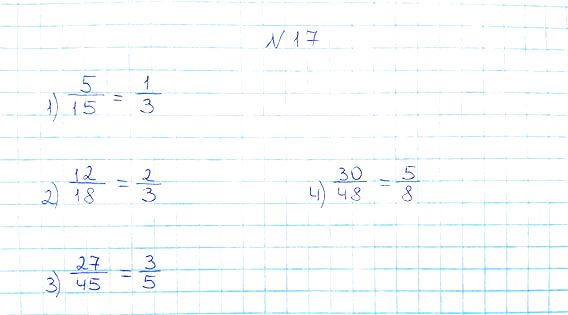 N 17
1) 5/15 = 1/3
2) 12/18 = 2/3
4) 30/48 = 5/8
3) 27/45 = 3/5